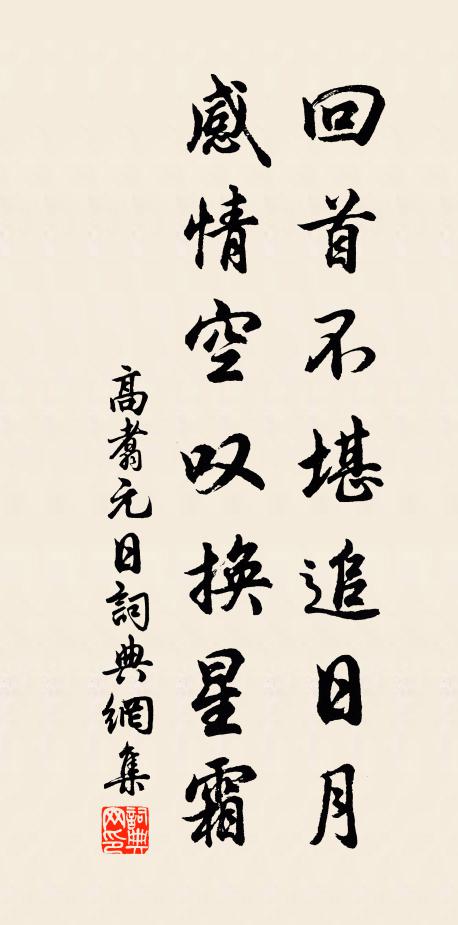 回首不堪追日月
感情空叹换星霜
高翥元日詞典網集
詞典網印